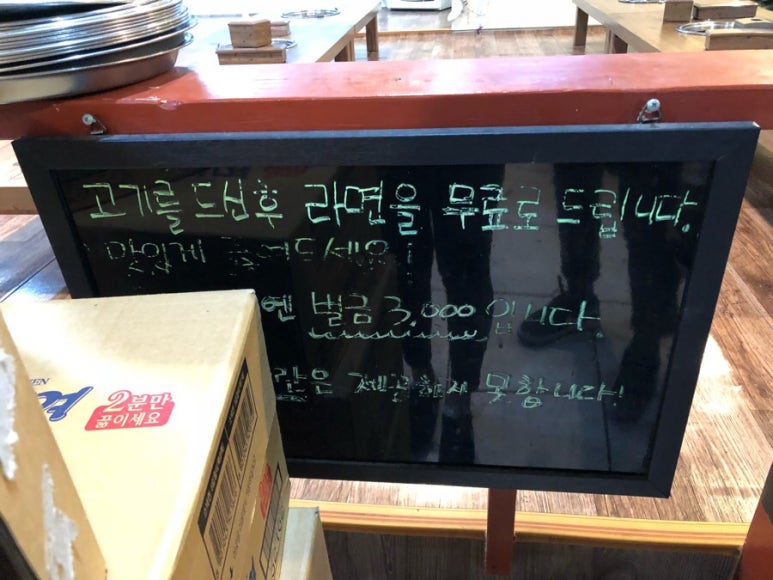 고기를 드신후 라면을 무료로 드립니다.
맛있게 끓여드세요!
엔 벌금 3,000입니다.
같은 제공하지 못합니다!
2분만
끓이세요